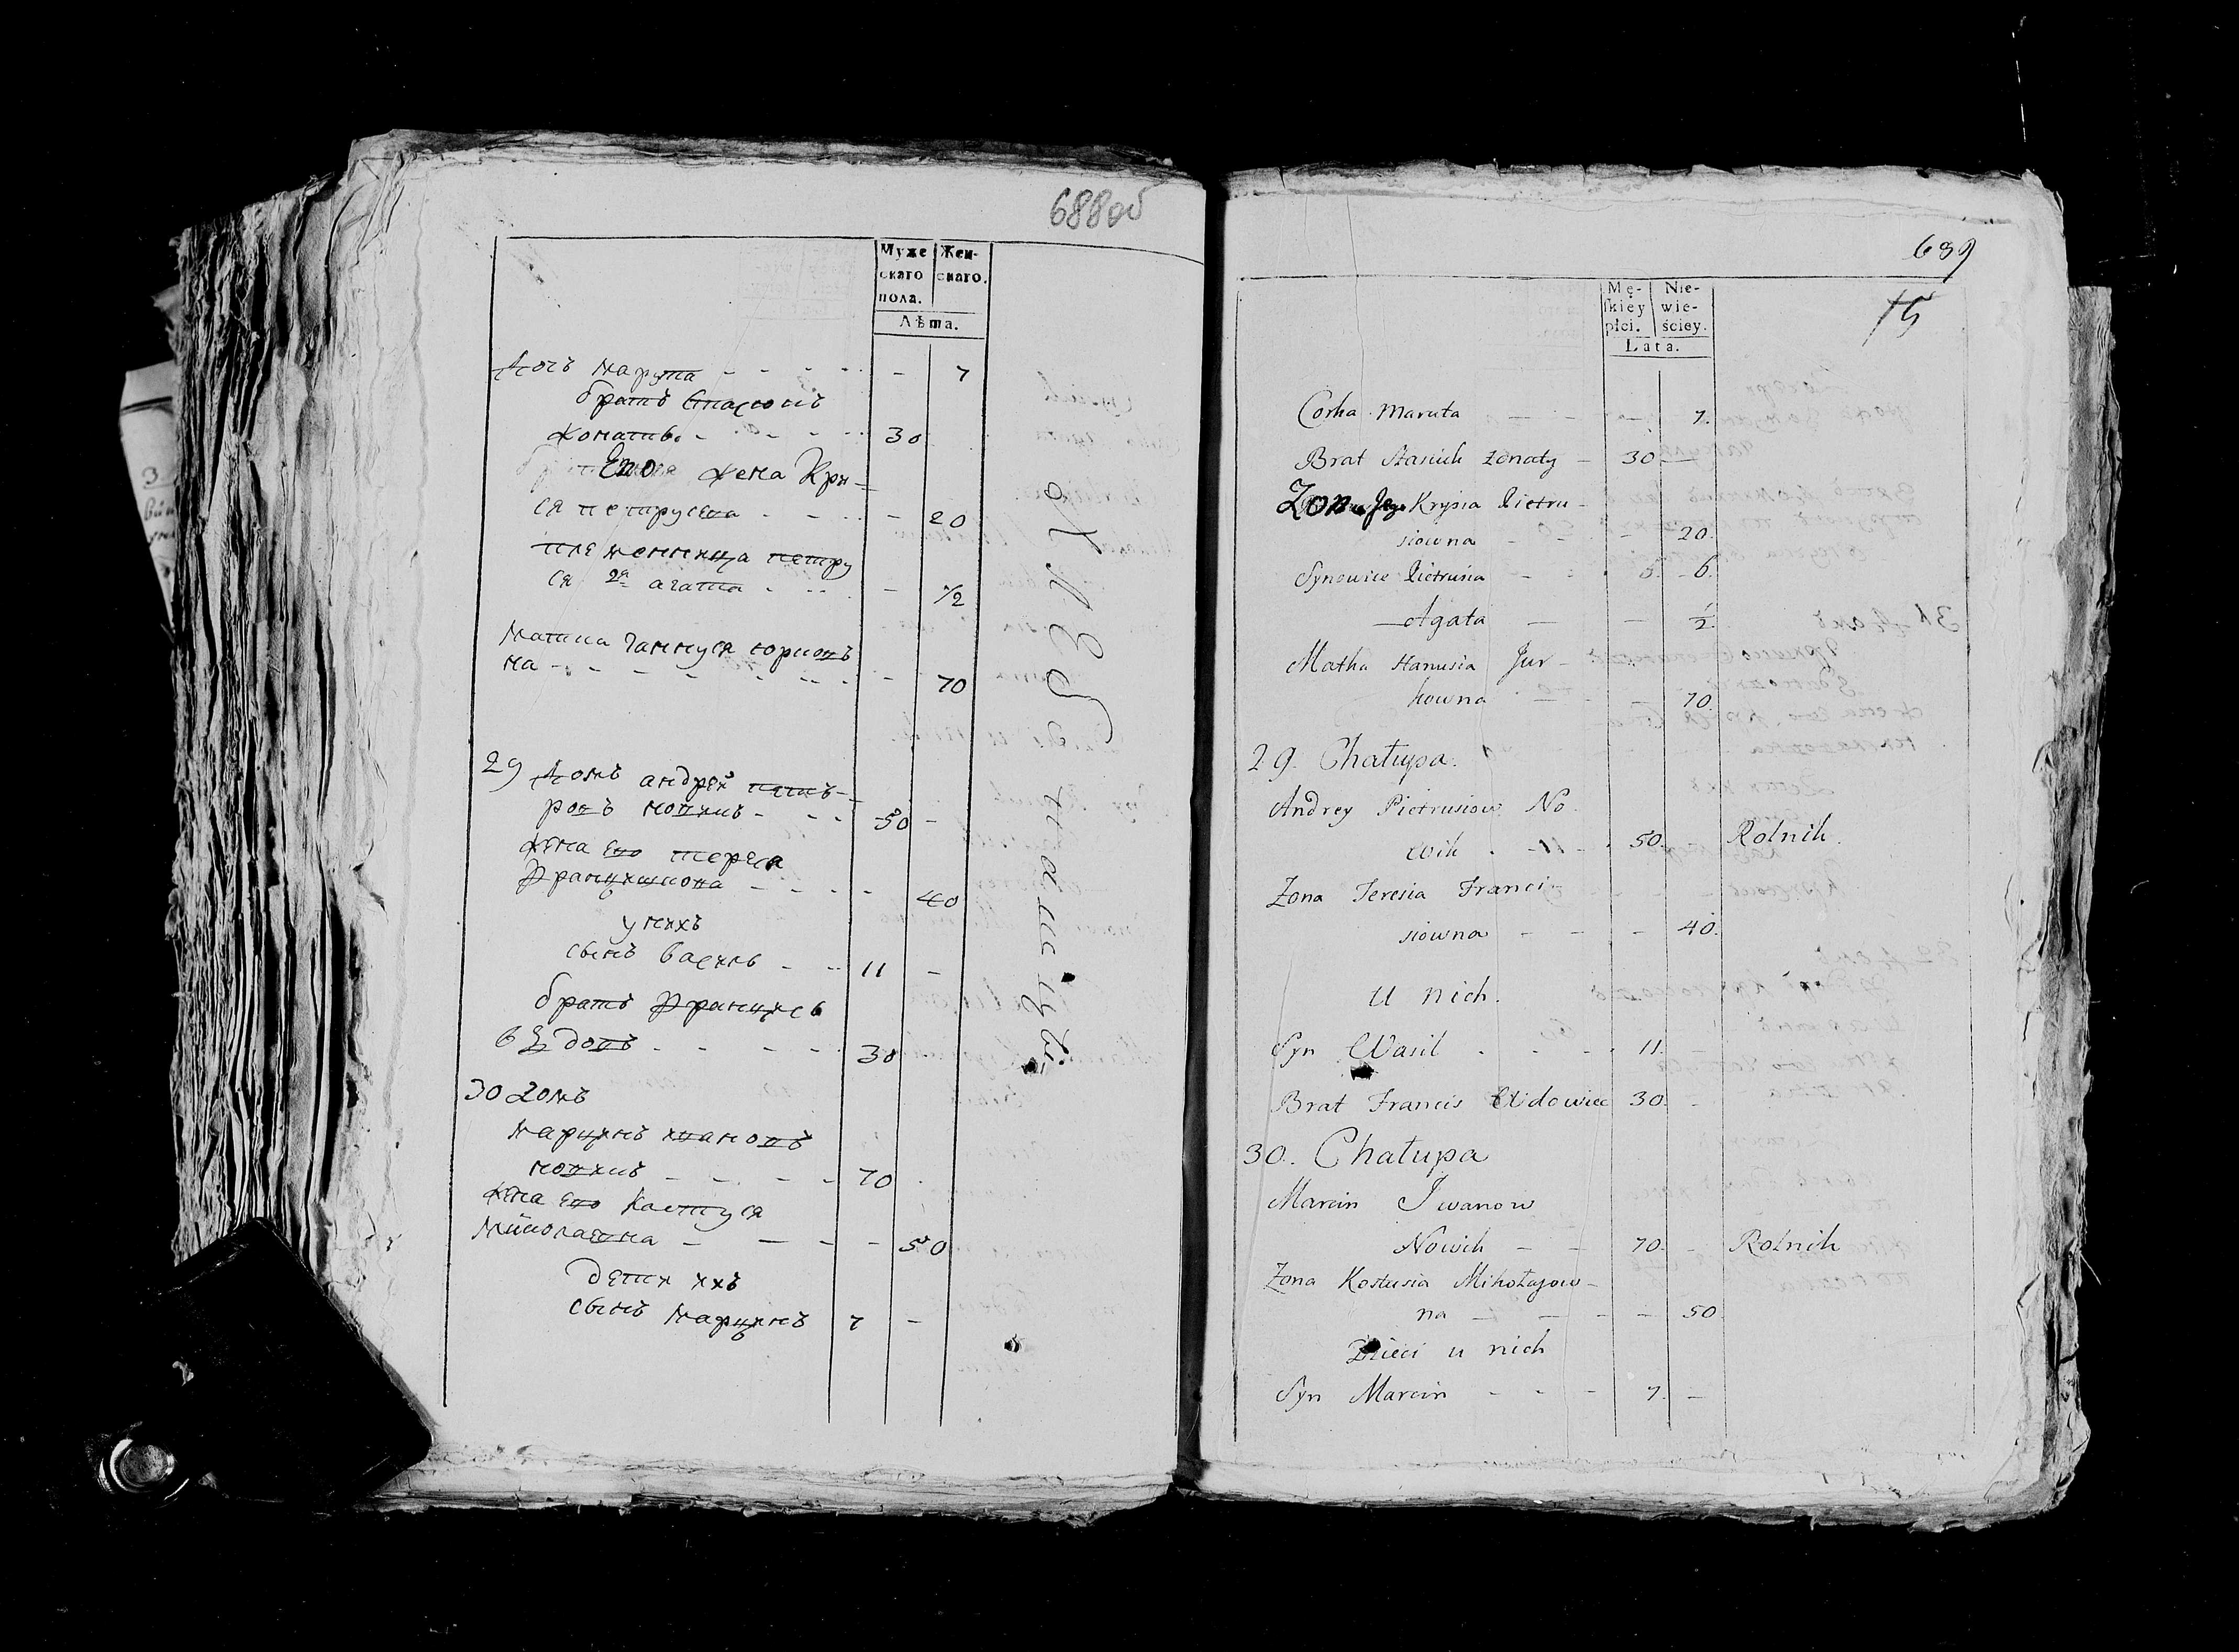 688об
Муже
скаго
пола.
Жен-
скаго.
Лѣта.
дочь марута - - - - - - 7
братъ стасюкъ
жонатъ - - - - 30
Его жена Кры-
ся петрусева - - - - 20
племенница петру
ся 2я агата - - - - 1/2
матка ганнуся юрков
на - - - - - - - 70
29 домъ андрей пет
ровъ новикъ - - - 50 -
жена его тереса
францишкова - - - - 40
у нихъ
сынъ василь - - 11 -
братъ францись
вдовъ - - - - 30
30 домъ
марцинъ ивановъ
новикъ - - - - - 70
жена его костуся
миколаевна - - - - 50
дети ихъ
сынъ марцинъ 7 -
689
15
Mę-
ſkiey
płci.
Nie-
wie-
ściey.
Lata.
Corka Maruta — - — 7.
Brat Stasiuk żonaty - 30 —
Zona Jego Krysia Pietru -
siowna - - - 20.
Synowice Pietrusia - - - 6.
— Agata — — 1/2
Matka Hanusia Jur -
kowna — - 70.
29. Chałupa.
Andrey Pietrusiow No
wik - - - 50. - Rolnik.
Zona Teresia Franci
siowna - - - 40.
U nich.
Syn Wasil - - - 11. -
Brat Francis Wdowiec 30. -
30. Chałupa
Marcin Iwanow
Nowik — - 70. - Rolnik
Zona Kostusia Mikołajow -
na — — - — 50
Dzieci u nich
Syn Marcin - - - 7. —